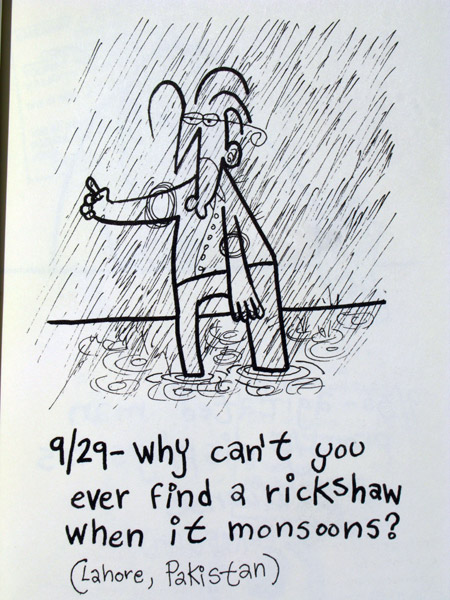 9/29- why can't you
ever find a rickshaw
when it monsoons?
(Lahore, Pakistan)